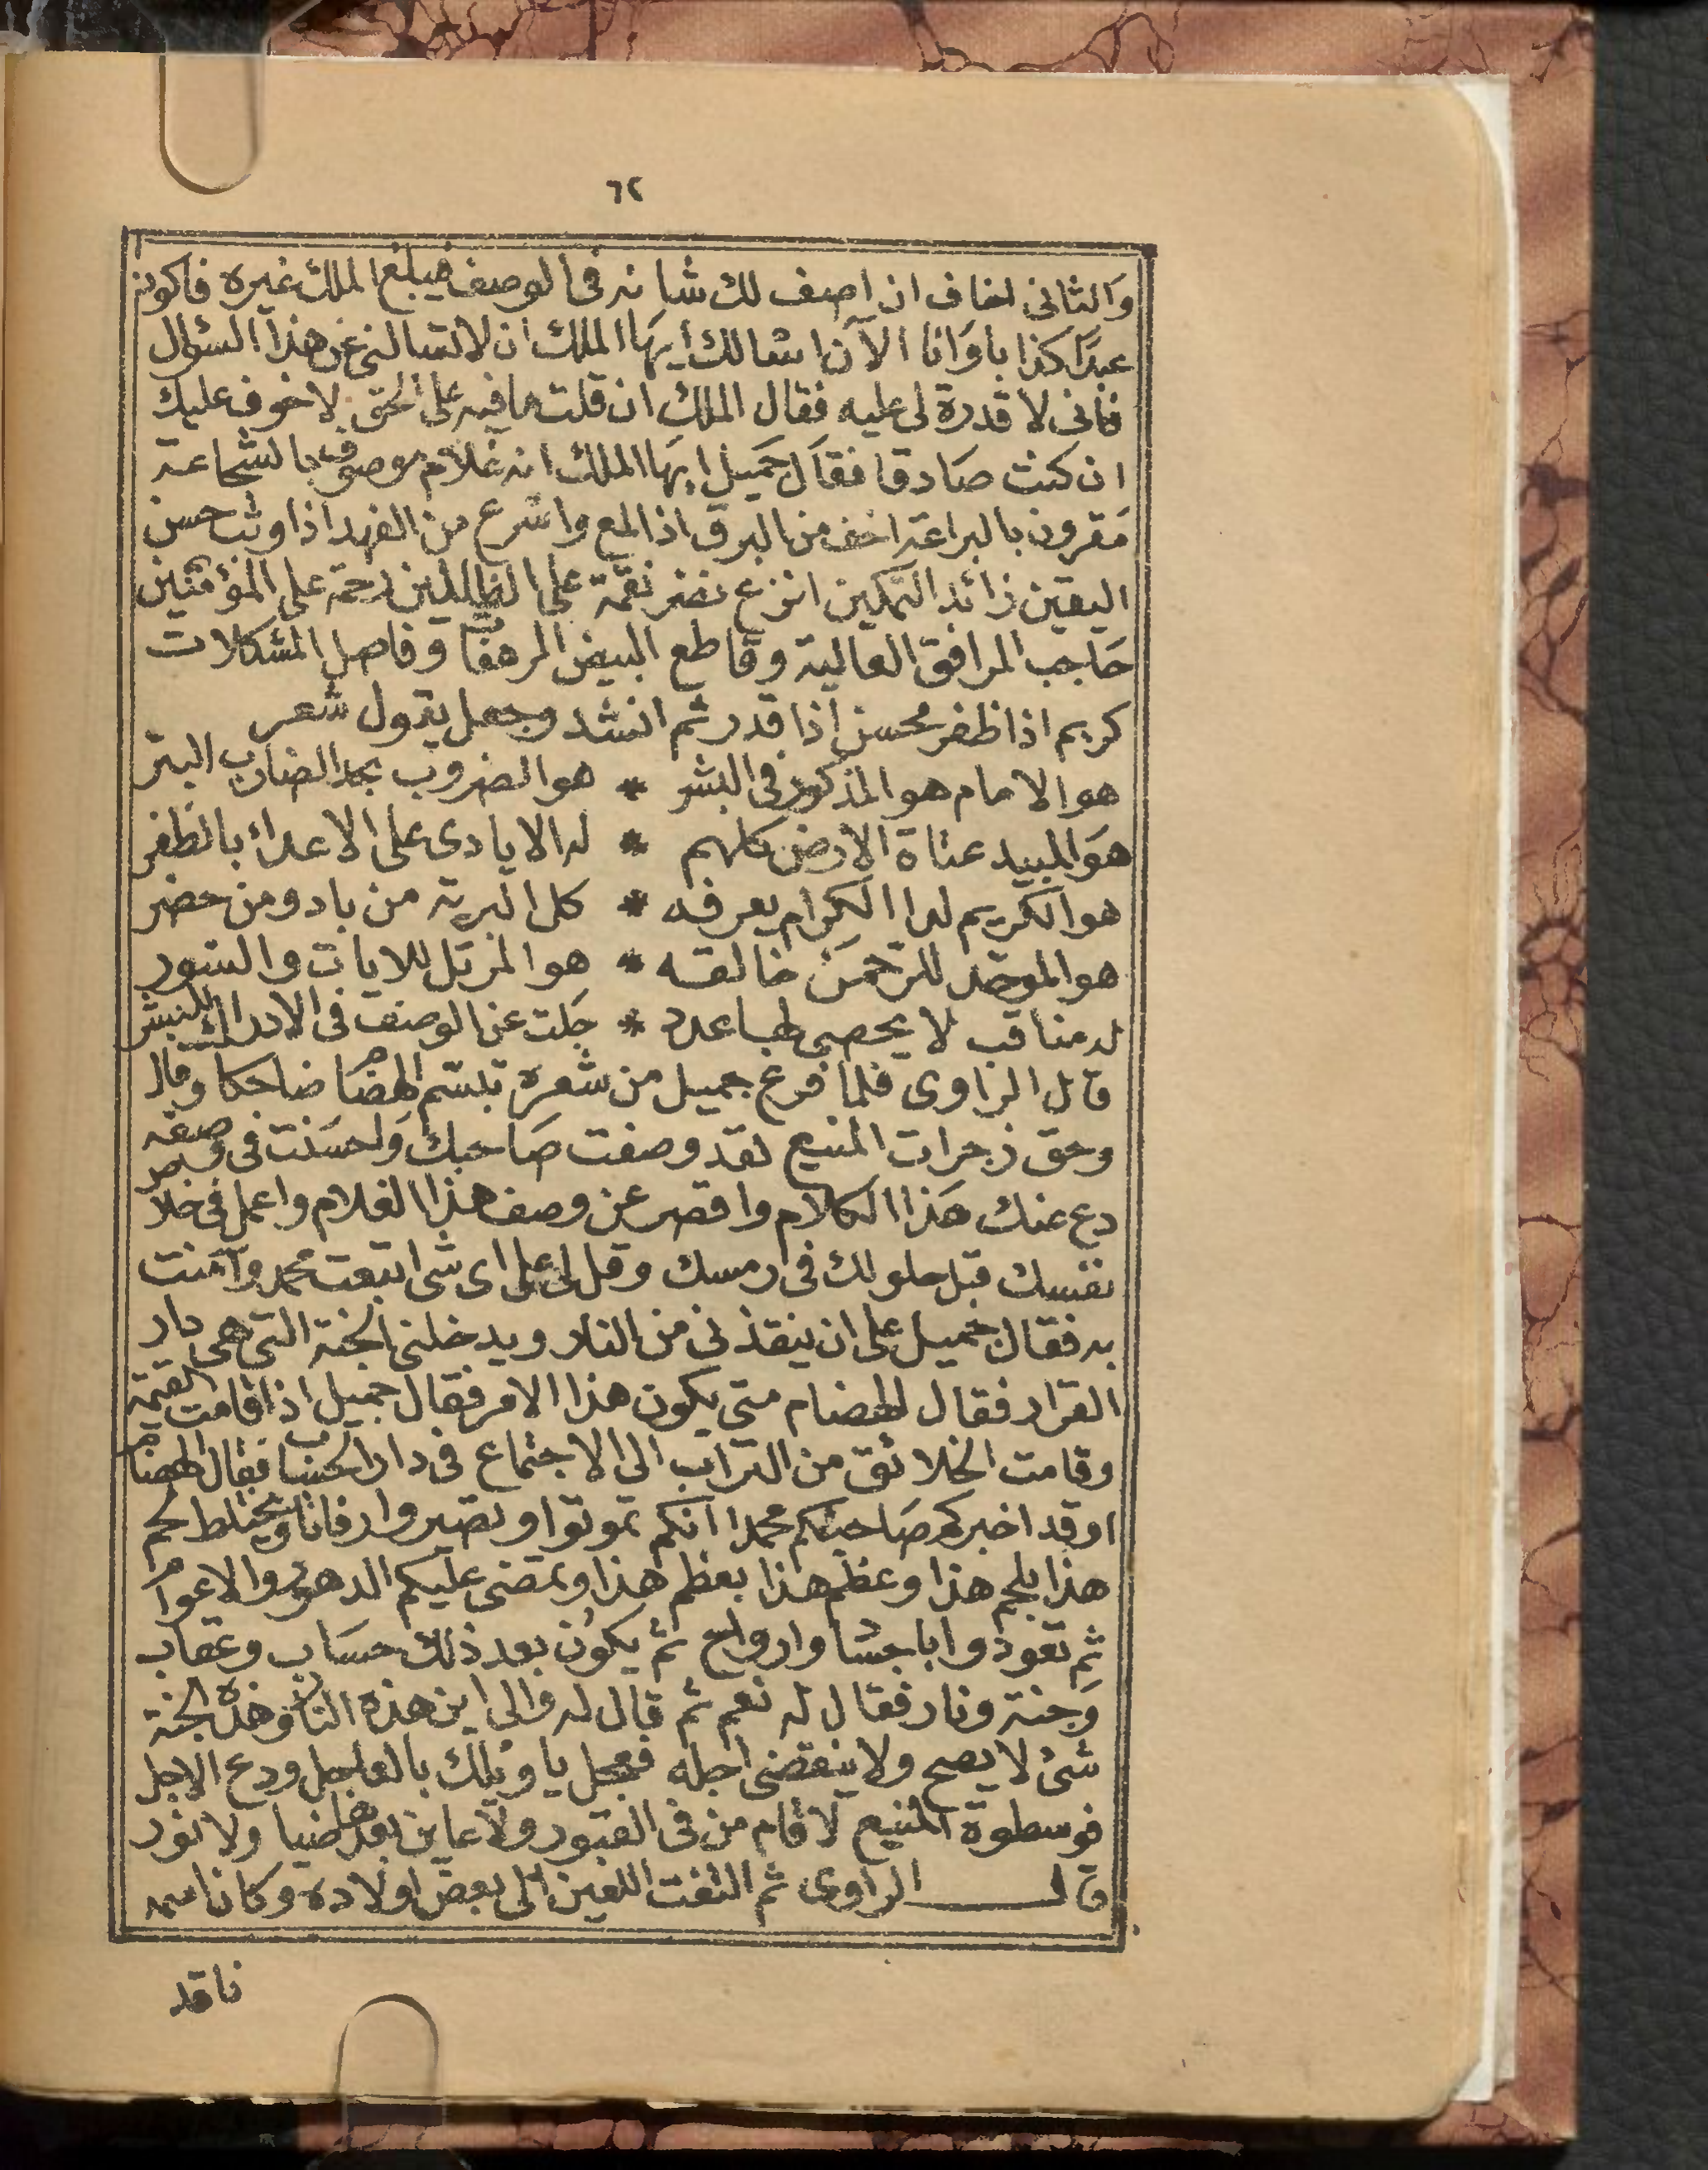 ٦٢
والثانى اخاف ان اصف لك شانه فى الوصف فيبلغ الملك غيره فاكون
عبدا كذابا وانا الآن اسالك ايها الملك ان لا تسالنى عن هذا السؤال
فانى لا قدرة لى عليه فقال الملك ان قلت ما فيه على الحق لا خوف عليك
ان كنت صادقا فقال جميل ايها الملك انه غلام موصوف بالشجاعة
مقرون بالبراعة اخف من البرق اذا لمع واسرع من الفهد اذا وثب حسن
اليقين زائد التمكين انزع نضر نقمة على الظالمين رحمة على المؤمنين
حاجب المرافق العالية وقاطع البيض المرهفات وفاصل المشكلات
كريم اذا ظفر محسن اذا قدر ثم انشد وجعل يقول شعر
هو الامام هو المذكور فى البشر * هو الضروب بحد الضارب البتر
هو المبيد عتاة الارض كلهم * له الايادى على الاعداء بالظفر
هو الكريم لدا الكرام يعرفه * كل البرية من باد ومن حضر
هو الموحد للرحمن خالقه * هو المرتل للايات والسور
له مناقب لا يحصى لها عدد * جلت عن الوصف فى الادراك للبشر
قال الراوى فلما فرغ جميل من شعره تبسم الهضام ضاحكا وقال
وحق زجرات المنيع لقد وصفت صاحبك واحسنت فى وصفه
دع عنك هذا الكلام واقصر عن وصف هذا الغلام واعمل فى خلاص
نفسك قبل حلولك فى رمسك وقل لى على اى شى اتبعت محمد وآمنت
به فقال جميل على ان ينقذنى من النار ويدخلنى الجنة التى هى دار
القرار فقال الهضام متى يكون هذا الامر فقال جميل اذا قامت القيمة
وقامت الخلائق من التراب الى الاجتماع فى دار الحساب فقال الهضام
اوقد اخبركم صاحبكم محمدا انكم تموتوا وتصيروا رفاتا ويختلط لحم
هذا بلحم هذا وعظم هذا بعظم هذا وتمضى عليكم الدهور والاعوام
ثم تعودوا باجسام وارواح ثم يكون بعد ذلك حساب وعقاب
وجنة ونار فقال له نعم ثم قال له والى اين هذه النار وهذه الجنة
شئ لا يصح ولا ينقضى اجله فعجل يا ويلك بالعاجل ودع الاجل
فوسطوة المنيع لا قام من فى القبور ولا عاين بعدها ضيا ولا نور
قال الراوى ثم التفت اللعين الى بعض اولاده وكان اسمه
ناقد